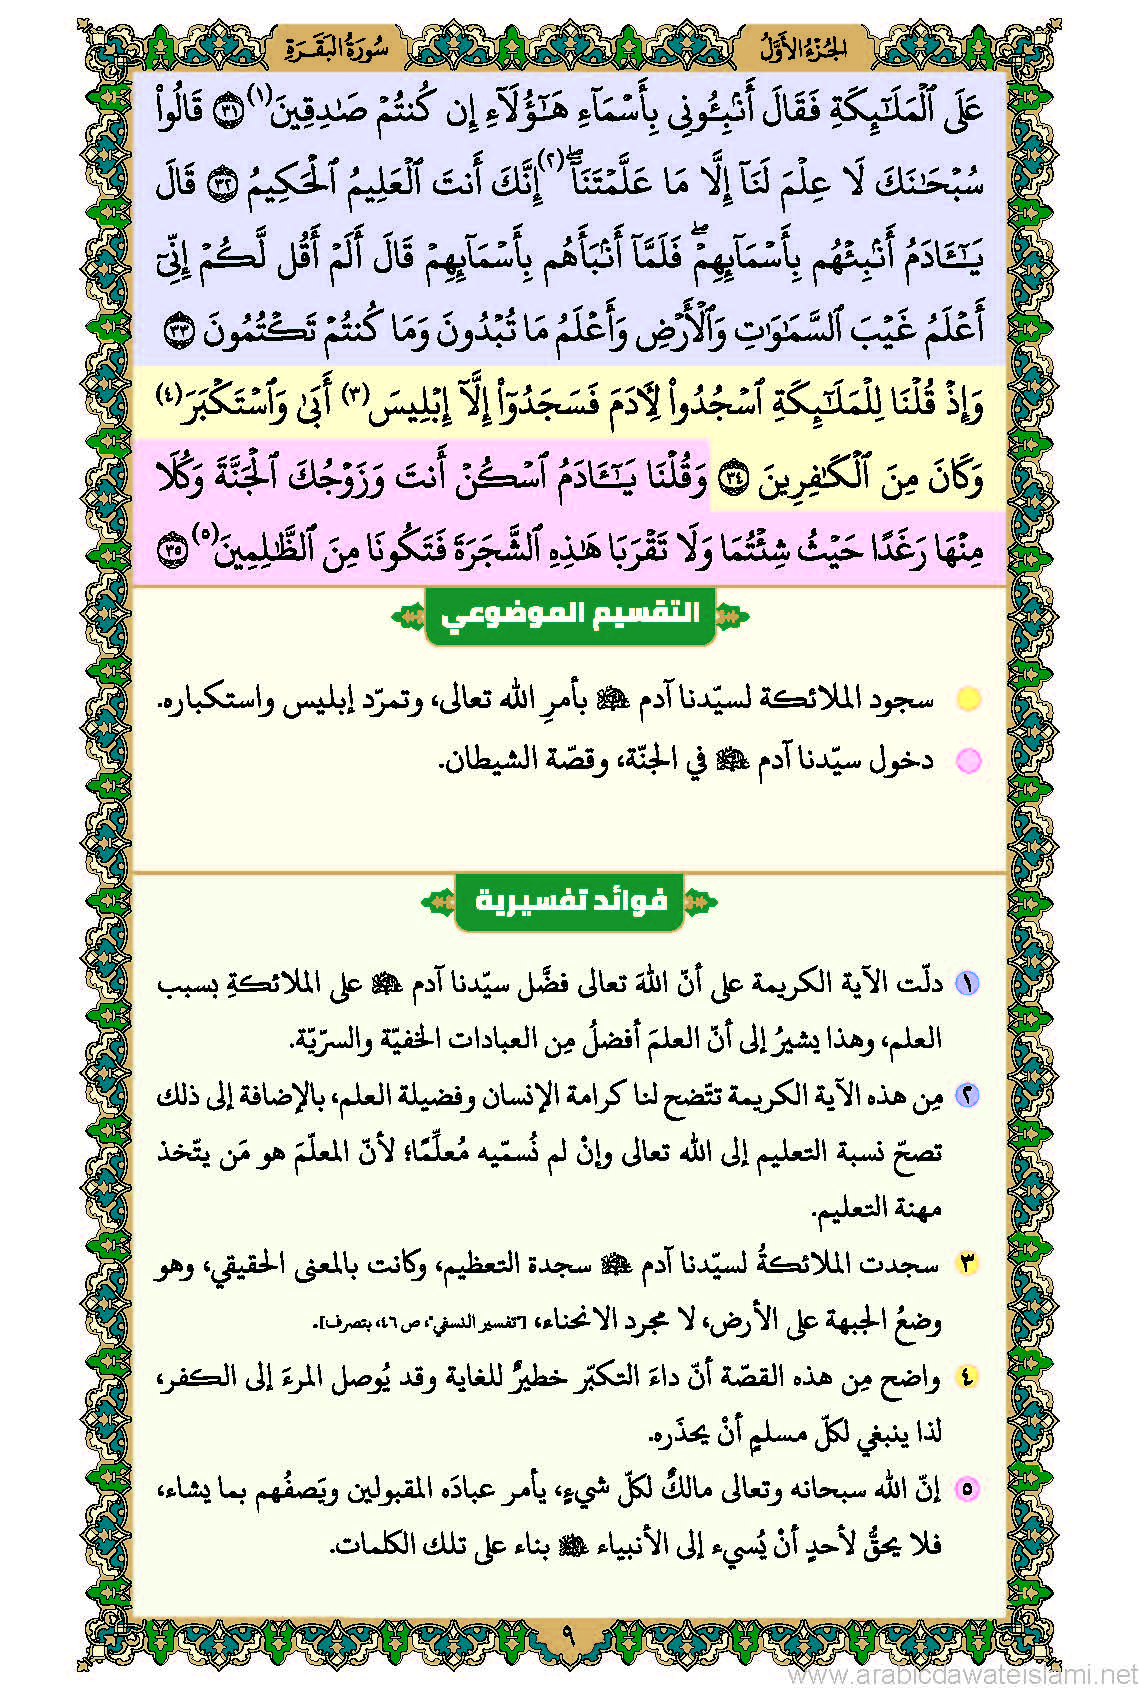 الجُزْءُ الأَوَّلُ
سُورَةُ البَقَرَةِ
عَلَى ٱلۡمَلَٰٓئِكَةِ فَقَالَ أَنۢبِـُٔونِي بِأَسۡمَآءِ هَٰٓؤُلَآءِ إِن كُنتُمۡ صَٰدِقِينَ(١) ٣١ قَالُواْ
سُبۡحَٰنَكَ لَا عِلۡمَ لَنَآ إِلَّا مَا عَلَّمۡتَنَآۖ(٢) إِنَّكَ أَنتَ ٱلۡعَلِيمُ ٱلۡحَكِيمُ ٣٢ قَالَ
يَٰٓـَٔادَمُ أَنۢبِئۡهُم بِأَسۡمَآئِهِمۡۖ فَلَمَّآ أَنۢبَأَهُم بِأَسۡمَآئِهِمۡ قَالَ أَلَمۡ أَقُل لَّكُمۡ إِنِّيٓ
أَعۡلَمُ غَيۡبَ ٱلسَّمَٰوَٰتِ وَٱلۡأَرۡضِ وَأَعۡلَمُ مَا تُبۡدُونَ وَمَا كُنتُمۡ تَكۡتُمُونَ ٣٣
وَإِذۡ قُلۡنَا لِلۡمَلَٰٓئِكَةِ ٱسۡجُدُواْ لِأٓدَمَ فَسَجَدُوٓاْ إِلَّآ إِبۡلِيسَ(٣) أَبَىٰ وَٱسۡتَكۡبَرَ(٤)
وَكَانَ مِنَ ٱلۡكَٰفِرِينَ ٣٤ وَقُلۡنَا يَٰٓـَٔادَمُ ٱسۡكُنۡ أَنتَ وَزَوۡجُكَ ٱلۡجَنَّةَ وَكُلَا
مِنۡهَا رَغَدًا حَيۡثُ شِئۡتُمَا وَلَا تَقۡرَبَا هَٰذِهِ ٱلشَّجَرَةَ فَتَكُونَا مِنَ ٱلظَّٰلِمِينَ(٥) ٣٥
التقسيم الموضوعي
سجود الملائكة لسيّدنا آدم بأمرِ الله تعالى، وتمرّد إبليس واستكباره.
دخول سيّدنا آدم في الجنّة، وقصّة الشيطان.
فوائد تفسيرية
١ دلّت الآية الكريمة على أنّ اللهَ تعالى فضَّل سيّدنا آدم على الملائكةِ بسبب
العلم، وهذا يشيرُ إلى أنّ العلمَ أفضلُ مِن العبادات الخفيّة والسرّيّة.
٢ مِن هذه الآية الكريمة تتّضح لنا كرامة الإنسان وفضيلة العلم، بالإضافة إلى ذلك
تصحّ نسبة التعليم إلى الله تعالى وإنْ لم نُسمّيه مُعلِّمًا؛ لأنّ المعلّمَ هو مَن يتّخذ
مهنة التعليم.
٣ سجدت الملائكةُ لسيّدنا آدم سجدة التعظيم، وكانت بالمعنى الحقيقي، وهو
وضعُ الجبهة على الأرض، لا مجرد الانحناء، ["تفسير النسفي"، ص ٤٦، بتصرف].
٤ واضح مِن هذه القصّة أنّ داءَ التكبّر خطيرٌ للغاية وقد يُوصل المرءَ إلى الكفر،
لذا ينبغي لكلّ مسلمٍ أنْ يحذَره.
٥ إنّ الله سبحانه وتعالى مالكٌ لكلّ شيءٍ، يأمر عبادَه المقبولين ويَصفُهم بما يشاء،
فلا يحقُّ لأحدٍ أنْ يُسيء إلى الأنبياء بناء على تلك الكلمات.
٩
www.arabicdawateislami.net